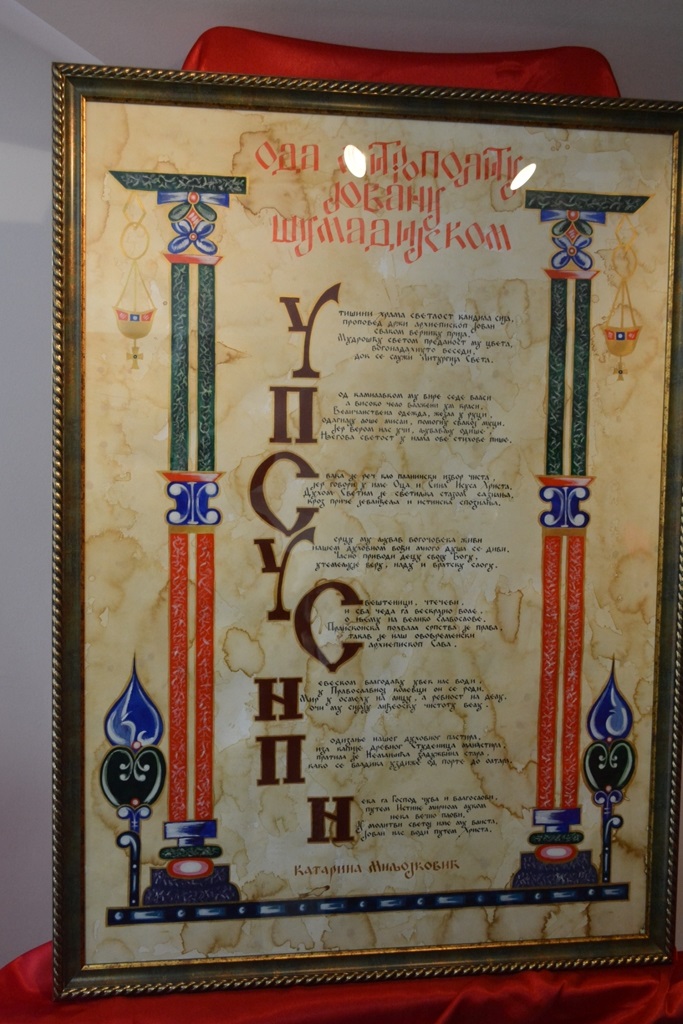 ОДА МИТРОПОЛИТУ
ЈОВАНУ
ШУМАДИЈСКОМ
У тишини храма светлост кандила сија,
проповед држи архиепископ Јован
сваком вернику прија.
Мудрошћу светом преданост му цвета,
богонадахнуто беседи,
док се служи Литургија Света.
Под камилавком му вире седе власи
а високо чело
Величанствена одежда, жезал у руци,
одагнају лоше мисли, помогну свакој муци,
Јер вером нас учи, љубављу одише,
Његова светост у нама ове стихове пише.
Свака је реч као планински извор чиста,
јер говори у име Оца и Сина Исуса Христа.
Духом Светим је светиљка стазом сазнања,
кроз приче јеванђеља и истинска спознања.
У срцу му љубав богочовека живи
нашем духовном вођи много душа се диви.
Часно приводи децу своју Богу,
утемељује веру, наду и братску слогу.
Свештеници, чтечеви,
и сва чеда га бескрајно воле.
о њему на велико славослове.
похвала српства је права,
такав је наш ововременски
архиепископ Сава.
Небеском благодаћу увек нас води,
у Православној колевци он се роди.
Мир у осмеху на лицу, а ревност на делу,
очи му сијају анђеоску чистоту белу.
Породизање нашег духовног пастира,
иза капије древног Студеница манастира,
пратила је Немањића задужбина стара,
како се владика уздиже од порте до олтара.
Нека га Господ чува и благослови,
путем Истине мирном луком
нека вечно плови.
У молитви светој име му блиста,
Јован нас води путем Христа.
Катарина Миљојковић